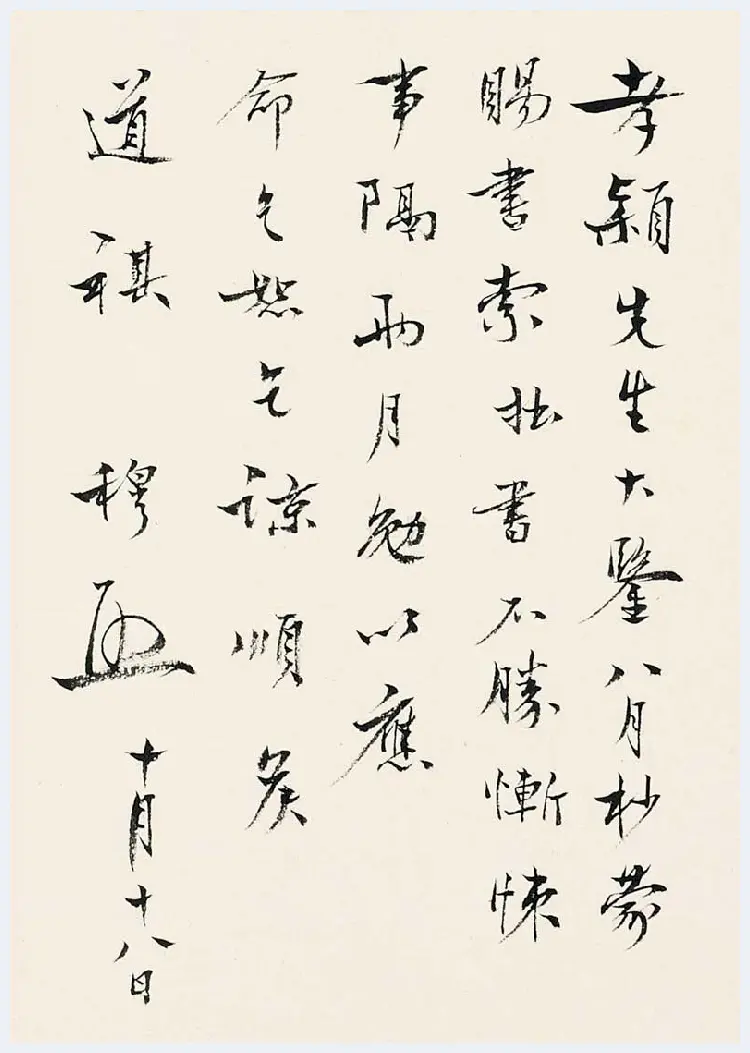 孝穎先生大鑒八月杪蒙
賜書索拙書不勝慚悚
事隔兩月勉以應
命乞恕乞諒順矦
道祺 穆 十月十八日